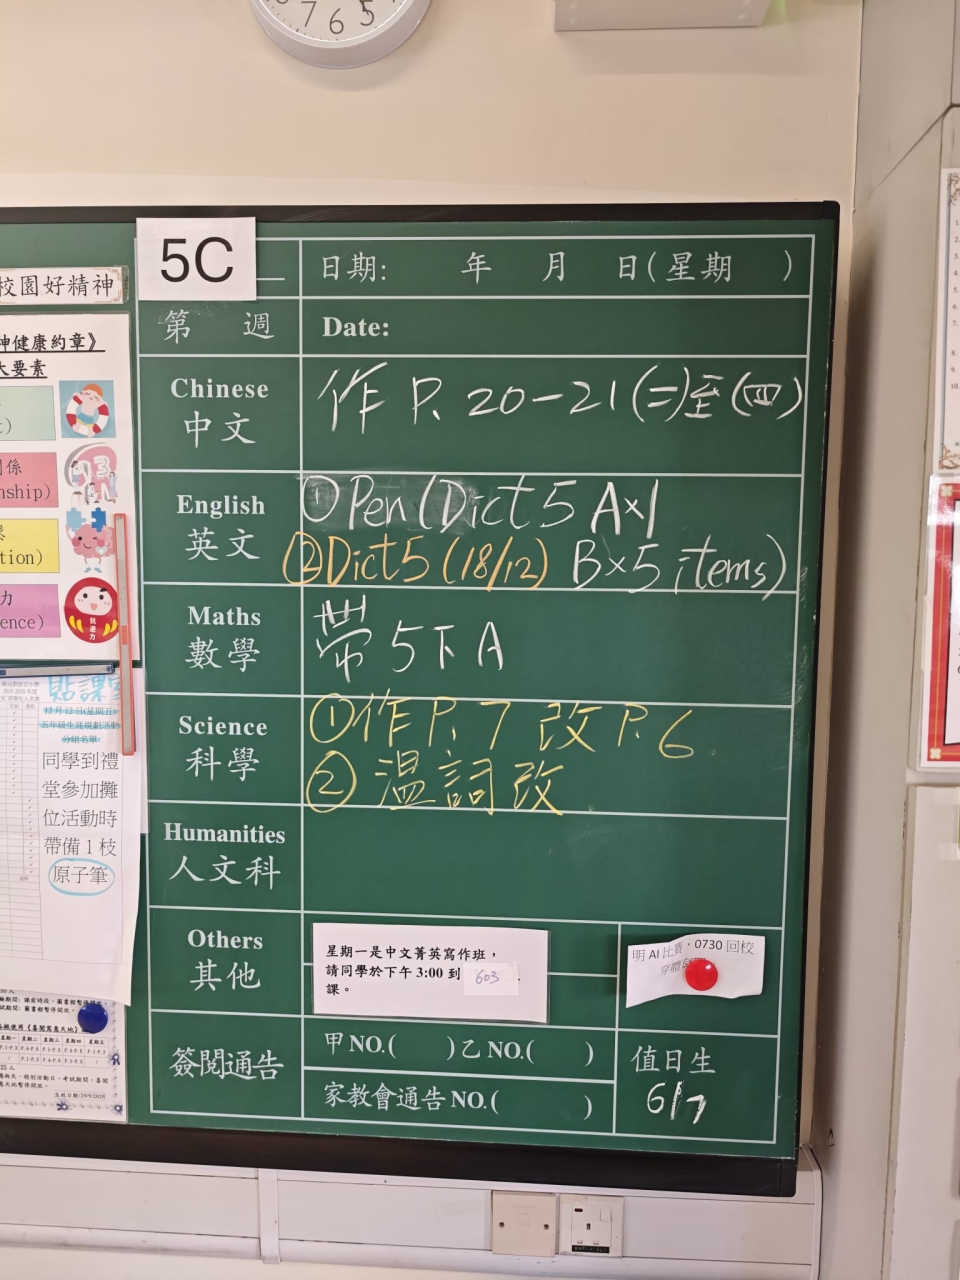 7 6 5
5C
日期: 年 月 日(星期 )
第 週
Date:
Chinese
中文
作 P. 20-21 (二)至(四)
English
英文
① Pen (Dict 5 A×1
② Dict 5 (18/12) B×5 items)
Maths
數學
帶 5下A
Science
科學
① 作 P. 7 改 P. 6
② 溫詞改
Humanities
人文科
Others
其他
星期一是中文菁英寫作班，
請同學於下午 3:00 到 603
課。
明 AI 比賽，0730 回校
簽閱通告
甲 NO.( )乙 NO.( )
家教會通告 NO.( )
值日生
6/7
校園好精神
神健康約章》
大要素
係
nship)
tion)
力
ence)
貼課室
12月12日(星期五)
五年級生涯規劃活動
分組名單
同學到禮
堂參加攤
位活動時
帶備 1 枝
原子筆